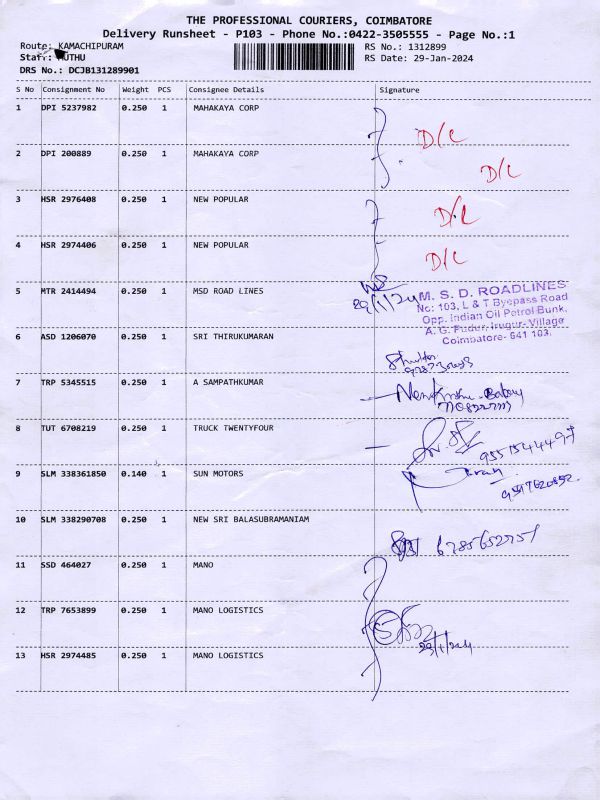 THE PROFESSIONAL COURIERS, COIMBATORE
Delivery Runsheet - P103 - Phone No.:0422-3505555 - Page No.:1
Route: KAMACHIPURAM RS No.: 1312899
Staff: MUTHU RS Date: 29-Jan-2024
DRS No.: DCJB131289901
S No Consignment No Weight PCS Consignee Details Signature
1 DPI 5237982 0.250 1 MAHAKAYA CORP
D/L
2 DPI 200889 0.250 1 MAHAKAYA CORP
D/L
3 HSR 2976408 0.250 1 NEW POPULAR
D/L
4 HSR 2974406 0.250 1 NEW POPULAR
D/L
5 MTR 2414494 0.250 1 MSD ROAD LINES
29/1/24
M. S. D. ROADLINES
No: 103, L & T Byepass Road
Opp. Indian Oil Petrol Bunk,
A. G. Pudur, Irugur-Village
Coimbatore- 641 103.
6 ASD 1206070 0.250 1 SRI THIRUKUMARAN
7 TRP 5345515 0.250 1 A SAMPATHKUMAR
8 TUT 6708219 0.250 1 TRUCK TWENTYFOUR
9 SLM 338361850 0.140 1 SUN MOTORS
10 SLM 338290708 0.250 1 NEW SRI BALASUBRAMANIAM
11 SSD 464027 0.250 1 MANO
12 TRP 7653899 0.250 1 MANO LOGISTICS
29/1/24
13 HSR 2974485 0.250 1 MANO LOGISTICS